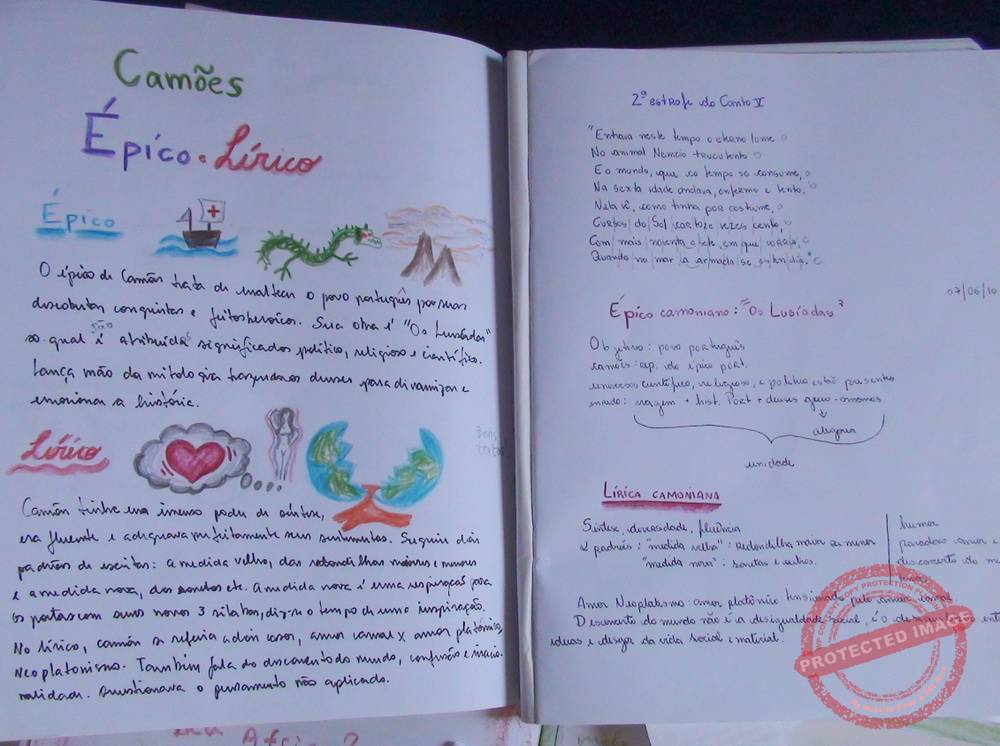 Camões
Épico e Lírico
Épico
O épico de Camões trata de enaltecer o povo português por suas
descobertas conquistas e feitos heroicos. Sua obra é "Os Lusíadas"
ao qual é são atribuídas significados político, religioso e científico.
Lança mão da mitologia trazendo deuses para dinamizar e
emocionar a história.
Lírico
Camões tinha um imenso poder de síntese,
era fluente e adequava perfeitamente seus sentimentos. Seguiu dois
padrões de escritas: a medida velha, das redondilhas maiores e menores
e a medida nova, dos sonetos etc. A medida nova é uma respiração para
os poetas com seus novos 3 sílabas, diz-se o tempo de uma inspiração.
No lírico, camões se referia a dois amor, amor carnal x amor platônico,
Neoplatonismo. Também fala do desconcerto do mundo, confusão e
nalidade. Questionava o pensamento não aplicado.
2ª estrofe do Canto V
"Entrava neste tempo o eterno lume
No animal Nemeio truculento
E o mundo, que co tempo se consume,
Na sexta idade andava, enfermo e lento,
Nela vê, como tinha por costume,
Cursos do Sol catorze vezes cento,
Com mais noventa e sete, em que corria,
Quando no mar a armada se estendia."
07/06/10
Épico camoniano: "Os Lusíadas"
Objetivo: povo português
camões rep. do épico port.
universos científico, religioso, e político estão presentes
enredo: viagem + hist. Port + deuses greco-romanos
alegoria
unidade
LÍRICA CAMONIANA
Síntese, diversidade, fluência
2 padrões: "medida velha": redondilha maior ou menor
"medida nova": sonetos e outros.
humor
paradoxo amor e
desconcerto do
Amor Neoplatismo: amor platônico tensionado pelo amor
Desconcerto do mundo não é a desigualdade social, é o
ideias e desejos da vida social e material.
PROTECTED IMAGE